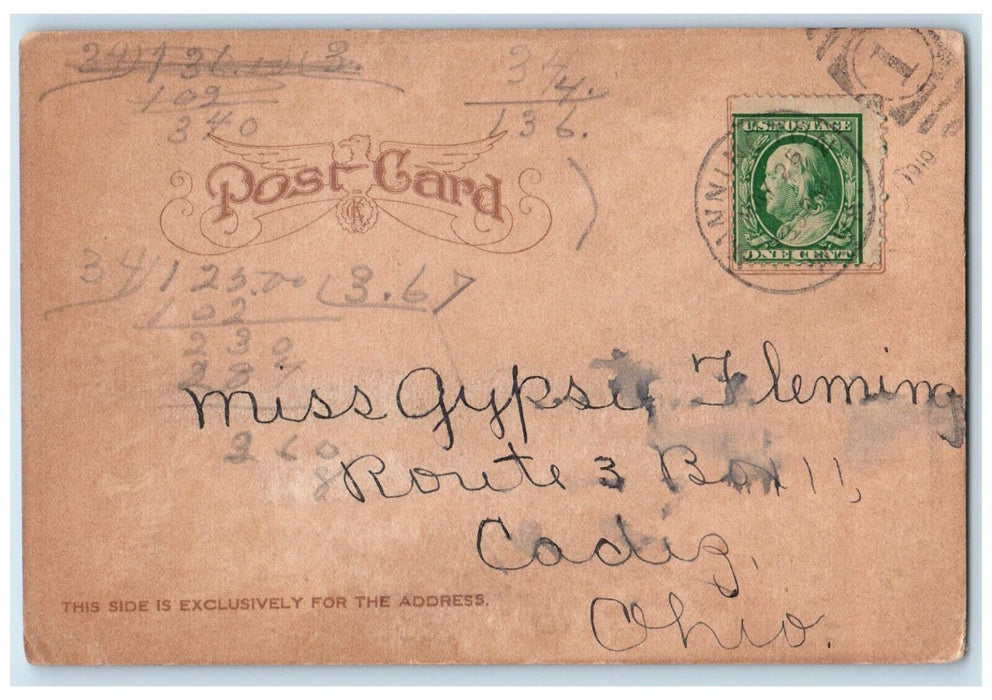 34)136.00(3.
102
340
34
4.
136.
1
Post Card
U.S. POSTAGE
ONE CENT
34)125.00(3.67
102
230
260
8
Miss Gypsie Fleming
Route 3 Box 11,
Cadiz,
Ohio.
THIS SIDE IS EXCLUSIVELY FOR THE ADDRESS.